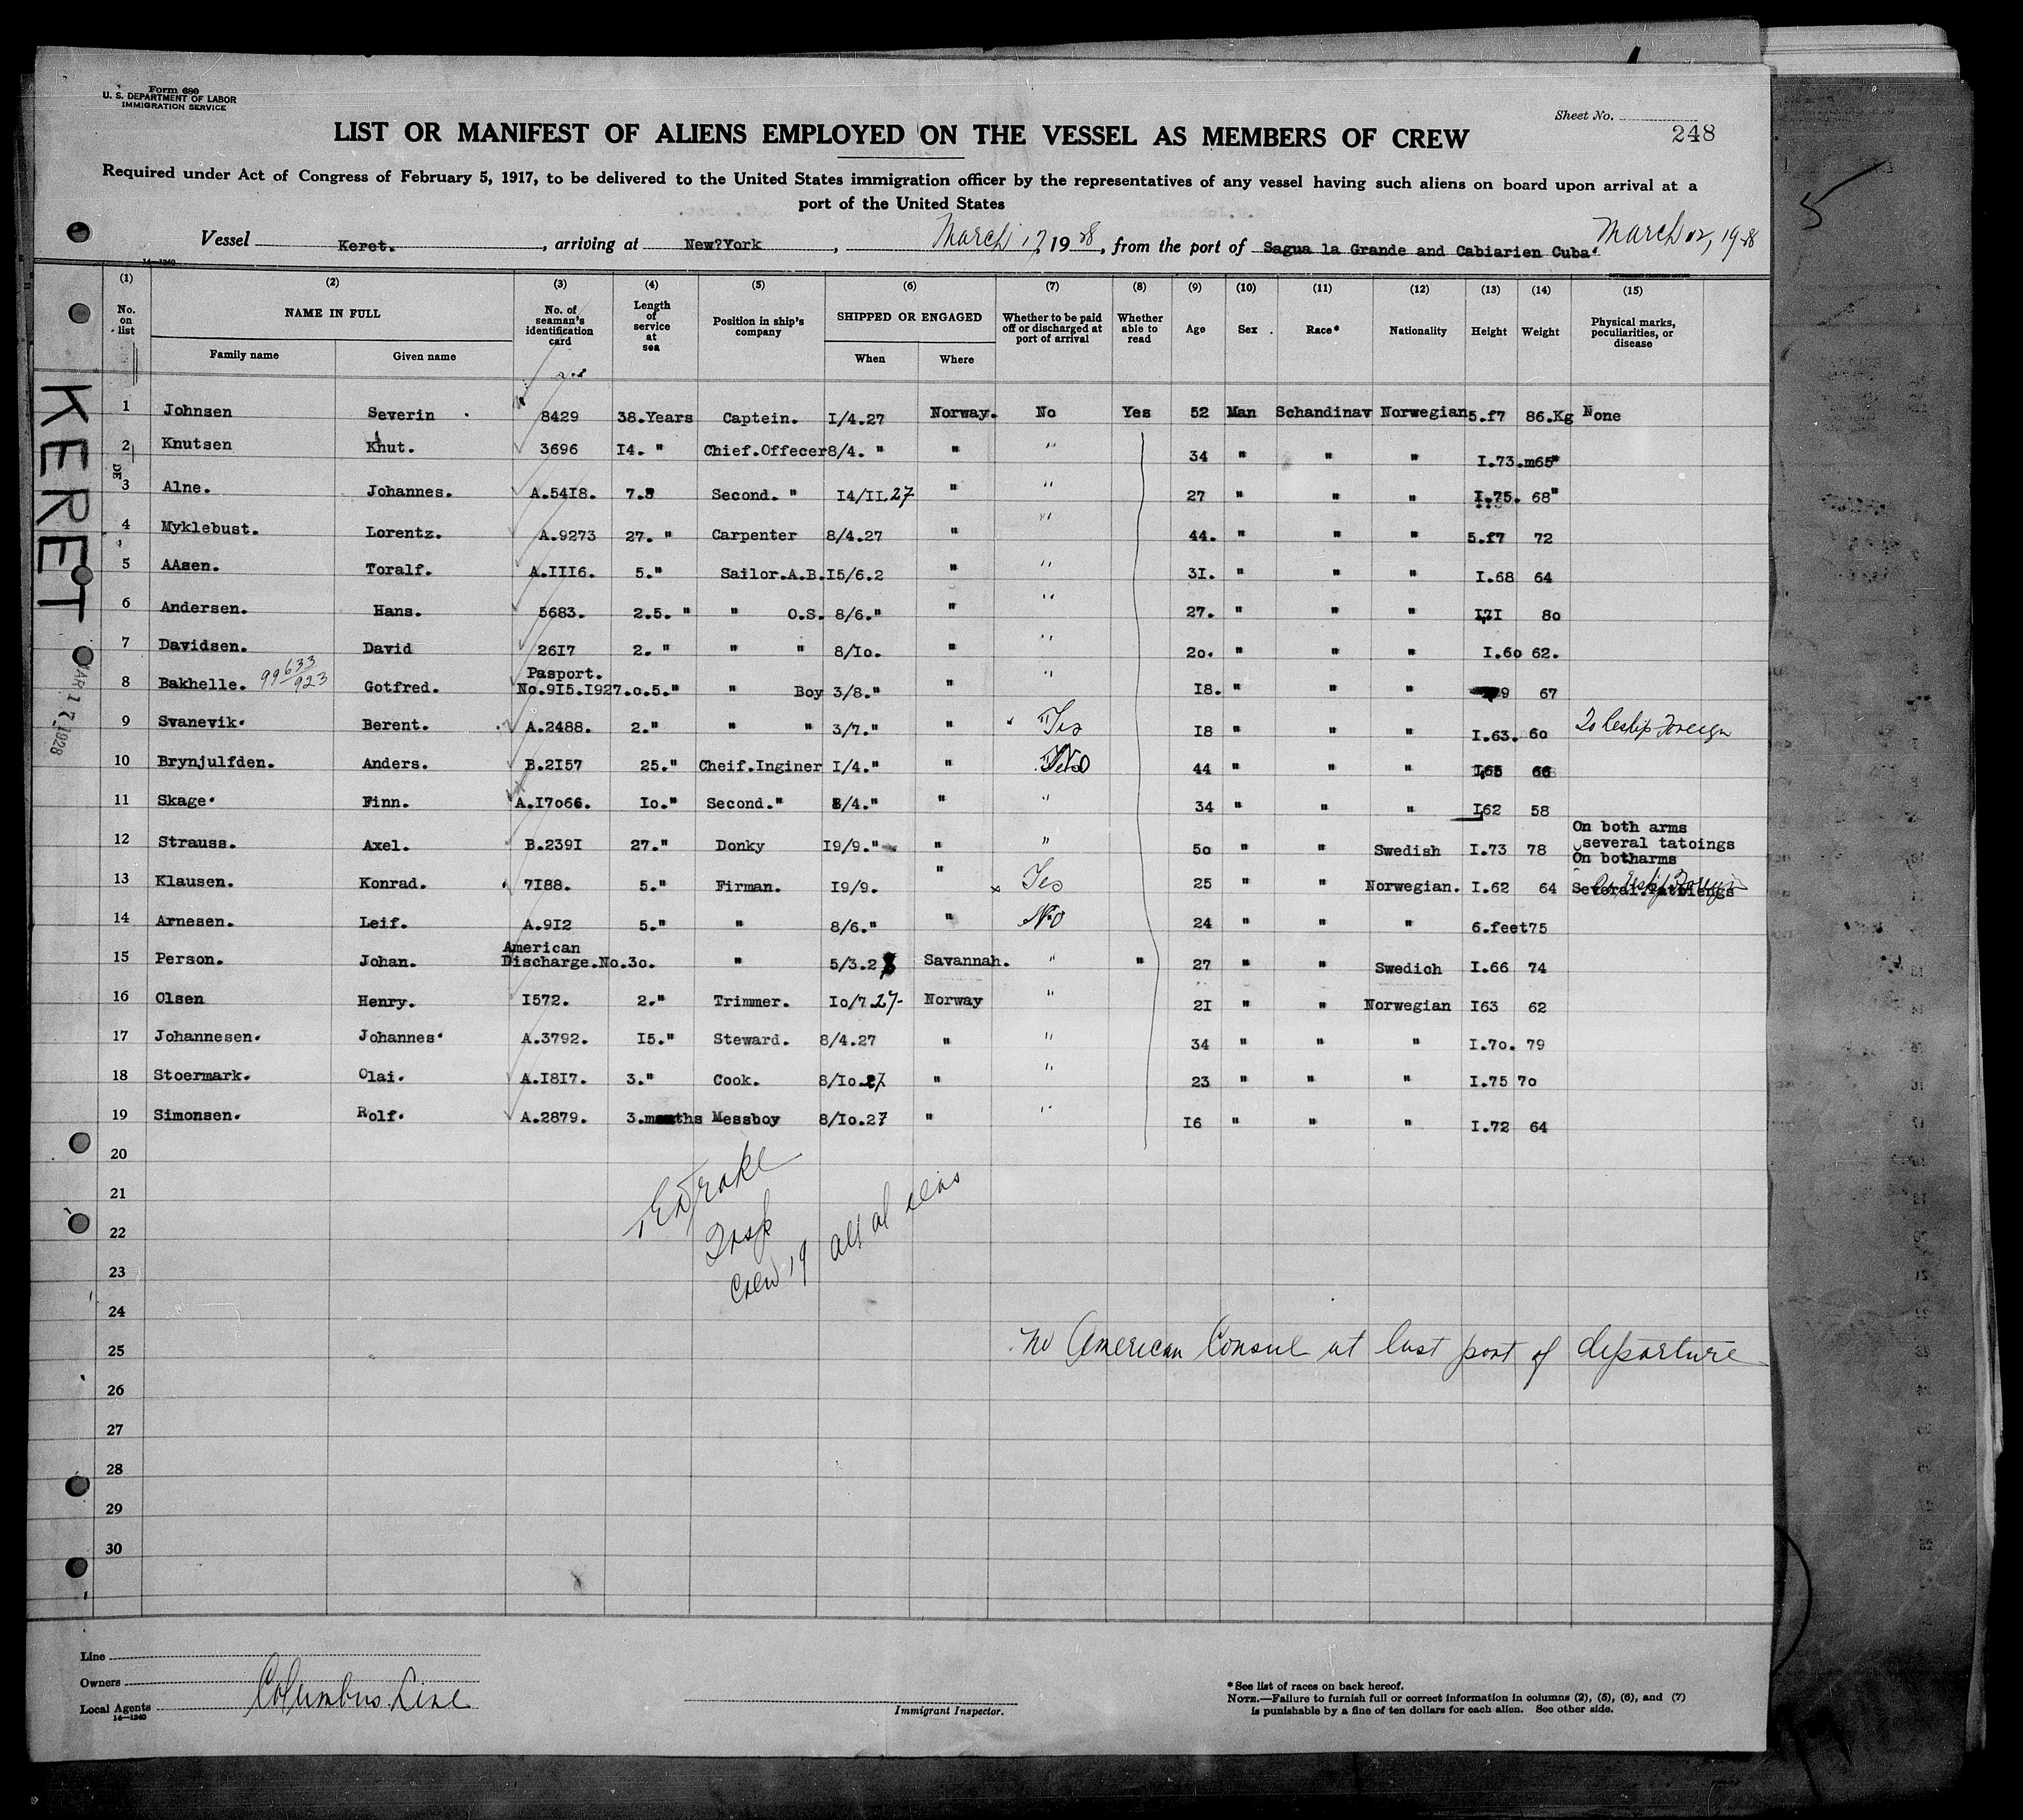 Form 680
U. S. DEPARTMENT OF LABOR
IMMIGRATION SERVICE
Sheet No.
248
LIST OR MANIFEST OF ALIENS EMPLOYED ON THE VESSEL AS MEMBERS OF CREW
Required under Act of Congress of February 5, 1917, to be delivered to the United States immigration officer by the representatives of any vessel having such aliens on board upon arrival at a
port of the United States
5
Vessel Keret. , arriving at New?York , March 17, 1928 , from the port of Sagua la Grande and Cabiarien Cuba. March 12, 1928
14—1240
(1) (2) (3) (4) (5) (6) (7) (8) (9) (10) (11) (12) (13) (14) (15)
No. on list NAME IN FULL Family name Given name No. of seaman's identification card Length of service at sea Position in ship's company SHIPPED OR ENGAGED When Where Whether to be paid off or discharged at port of arrival Whether able to read Age Sex Race* Nationality Height Weight Physical marks, peculiarities, or disease
KERET
MAR 17 1928
1 Johnsen Severin 8429 38.Years Captein. I/4.27 Norway. No Yes 52 Man Schandinav Norwegian 5.f7 86.Kg None
2 Knutsen Khut. 3696 I4. " Chief.Offecer 8/4. " " " 34 " " " I.73.m 65"
3 Alne. Johannes. A.54I8. 7. Second. " I4/II.27 " " 27 " " " I.75. 68"
4 Myklebust. Lorentz. A.9273 27. " Carpenter 8/4.27 " " 44. " " " 5.f7 72
5 AAsen. Toralf. A.III6. 5." Sailor.A.B. I5/6.2 " " 3I. " " " I.68 64
6 Andersen. Hans. 5683. 2.5. " " O.S. 8/6." " " 27. " " " I7I 8o
7 Davidsen. David 26I7 2. " " " 8/Io. " " 2o. " " " I.6o 62.
8 Bakhelle. 99633/923 Gotfred. Pasport. No.9I5.I927. o.5." " Boy 3/8." " " I8. " " " 67
9 Svanevik. Berent. A.2488. 2." " " 3/7." " Yes I8 " " " I.63. 6o To Reship Foreign
10 Brynjulfden. Anders. B.2I57 25." Cheif.Inginer I/4." " No 44 " " " I65 66
11 Skage. Finn. A.I7o66. Io." Second." 8/4." " " 34 " " " I62 58
12 Strauss. Axel. B.239I 27." Donky I9/9." " " 5o " " Swedish I.73 78 On both arms several tatoings
13 Klausen. Konrad. 7I88. 5." Firman. I9/9. " x Yes 25 " " Norwegian. I.62 64 On botharms Several.
14 Arnesen. Leif. A.9I2 5." " 8/6." " No 24 " " " 6.feet 75
15 Person. Johan. American Discharge.No.3o. " 5/3.28 Savannah. " " 27 " " Swedich I.66 74
16 Olsen Henry. I572. 2." Trimmer. Io/7.27- Norway " 2I " " Norwegian I63 62
17 Johannesen. Johannes. A.3792. I5." Steward. 8/4.27 " " 34 " " " I.7o. 79
18 Stoermark. Olai. A.I8I7. 3." Cook. 8/Io.27 " " 23 " " " I.75 7o
19 Simonsen. Rolf. A.2879. 3.months Messboy 8/Io.27 " " I6 " " " I.72 64
20
21
22
23
24
25
26
27
28
29
30
Drake
Insp
Crew 19 all aliens
no American Consul at last port of departure
Line
Owners
Local Agents Columbus Line
14—1240
Immigrant Inspector.
*See list of races on back hereof.
NOTE.—Failure to furnish full or correct information in columns (2), (5), (6), and (7)
is punishable by a fine of ten dollars for each alien. See other side.